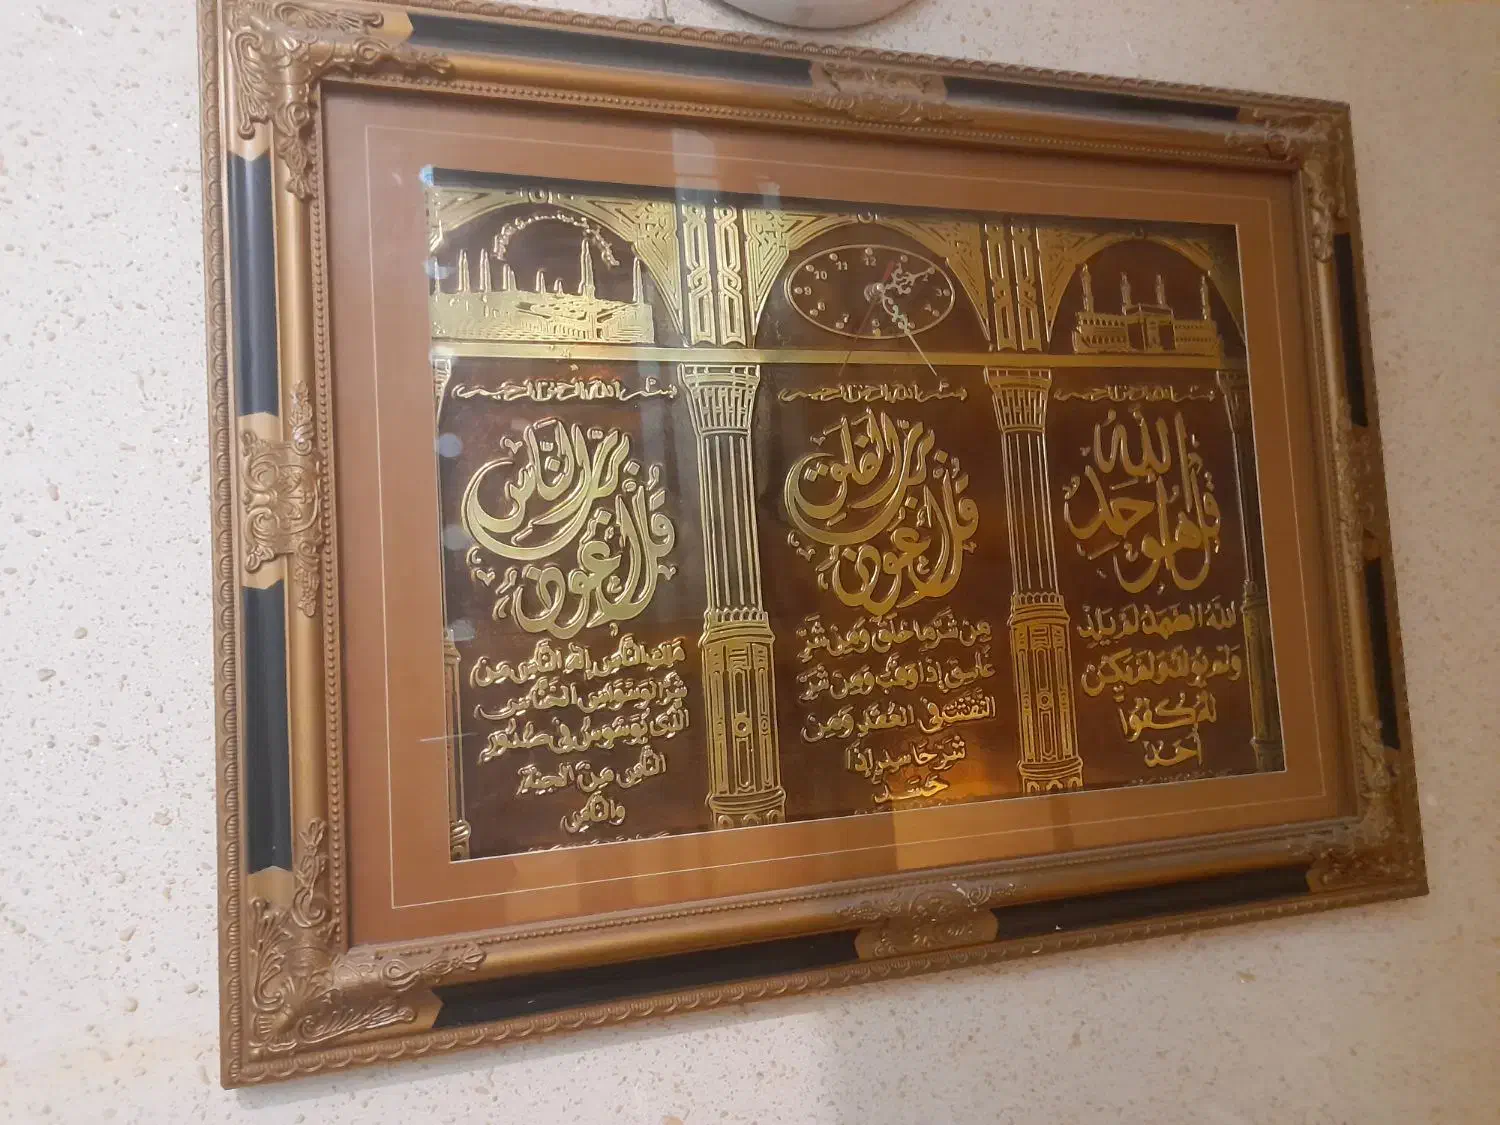 12
11
10
9
3
بسم الله الرحمن الرحيم
قل هو الله أحد
الله الصمد لم يلد
ولم يولد ولم يكن
له كفوا
أحد
بسم الله الرحمن الرحيم
قل أعوذ برب الفلق
من شر ما خلق ومن شر
غاسق إذا وقب ومن شر
النفثت في العقد ومن
شر حاسد إذا
حسد
بسم الله الرحمن الرحيم
قل أعوذ برب الناس
ملك الناس إله الناس من
شر الوسواس الخناس
الذي يوسوس في صدور
الناس من الجنة
والناس